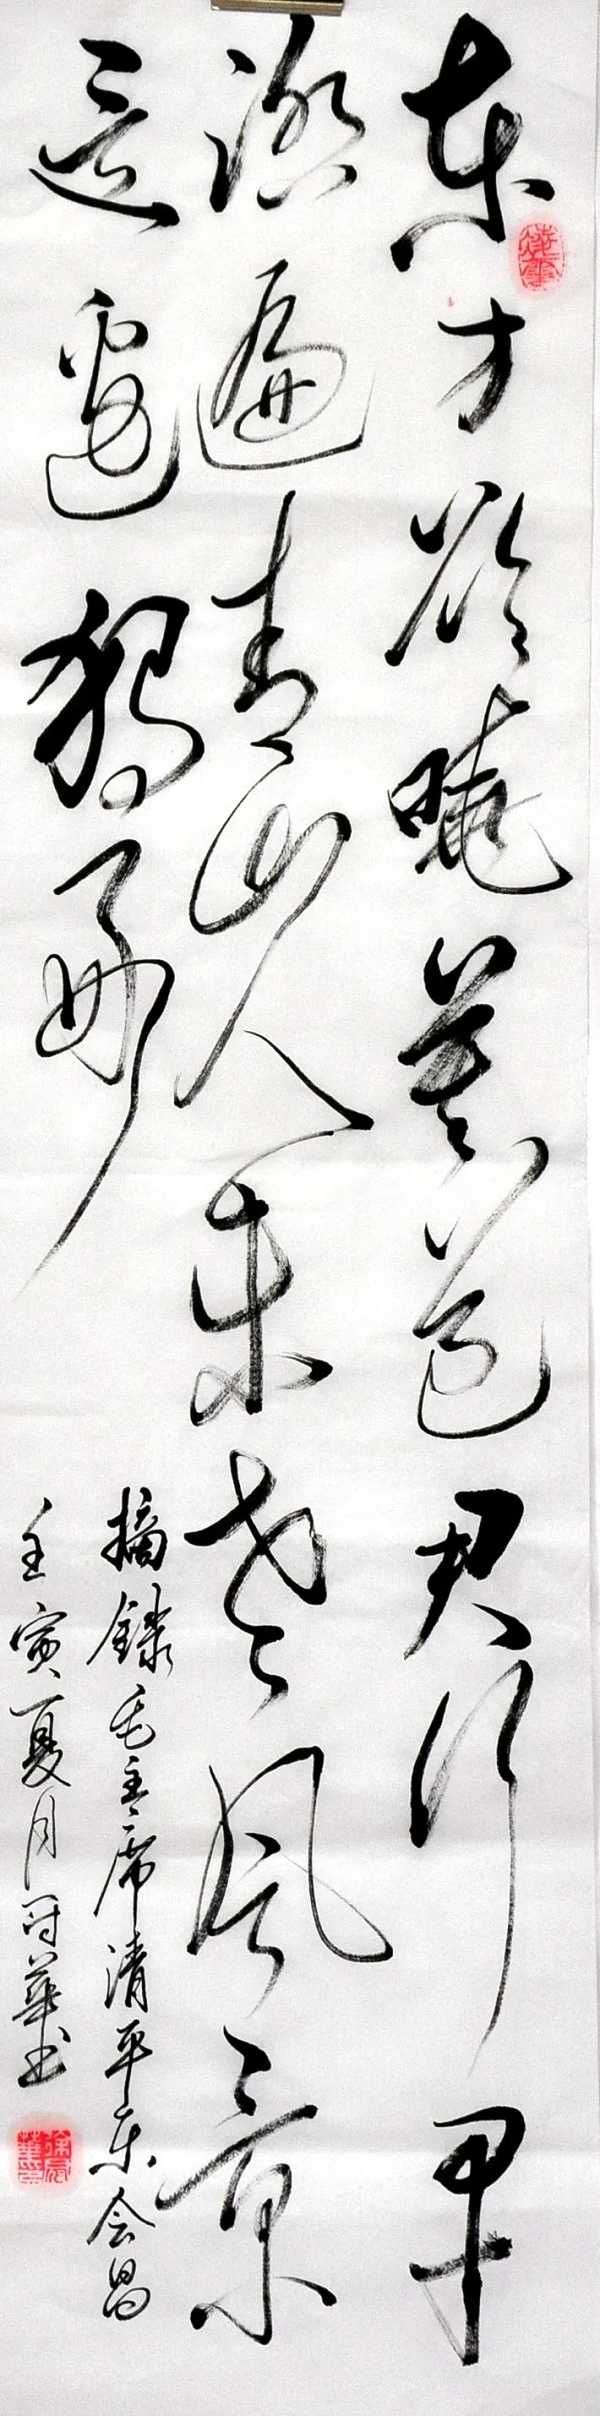 东方欲曉莫道君行早
踏遍青山人未老风景
這邊独好
摘録毛主席清平乐会昌
壬寅夏月冠華书